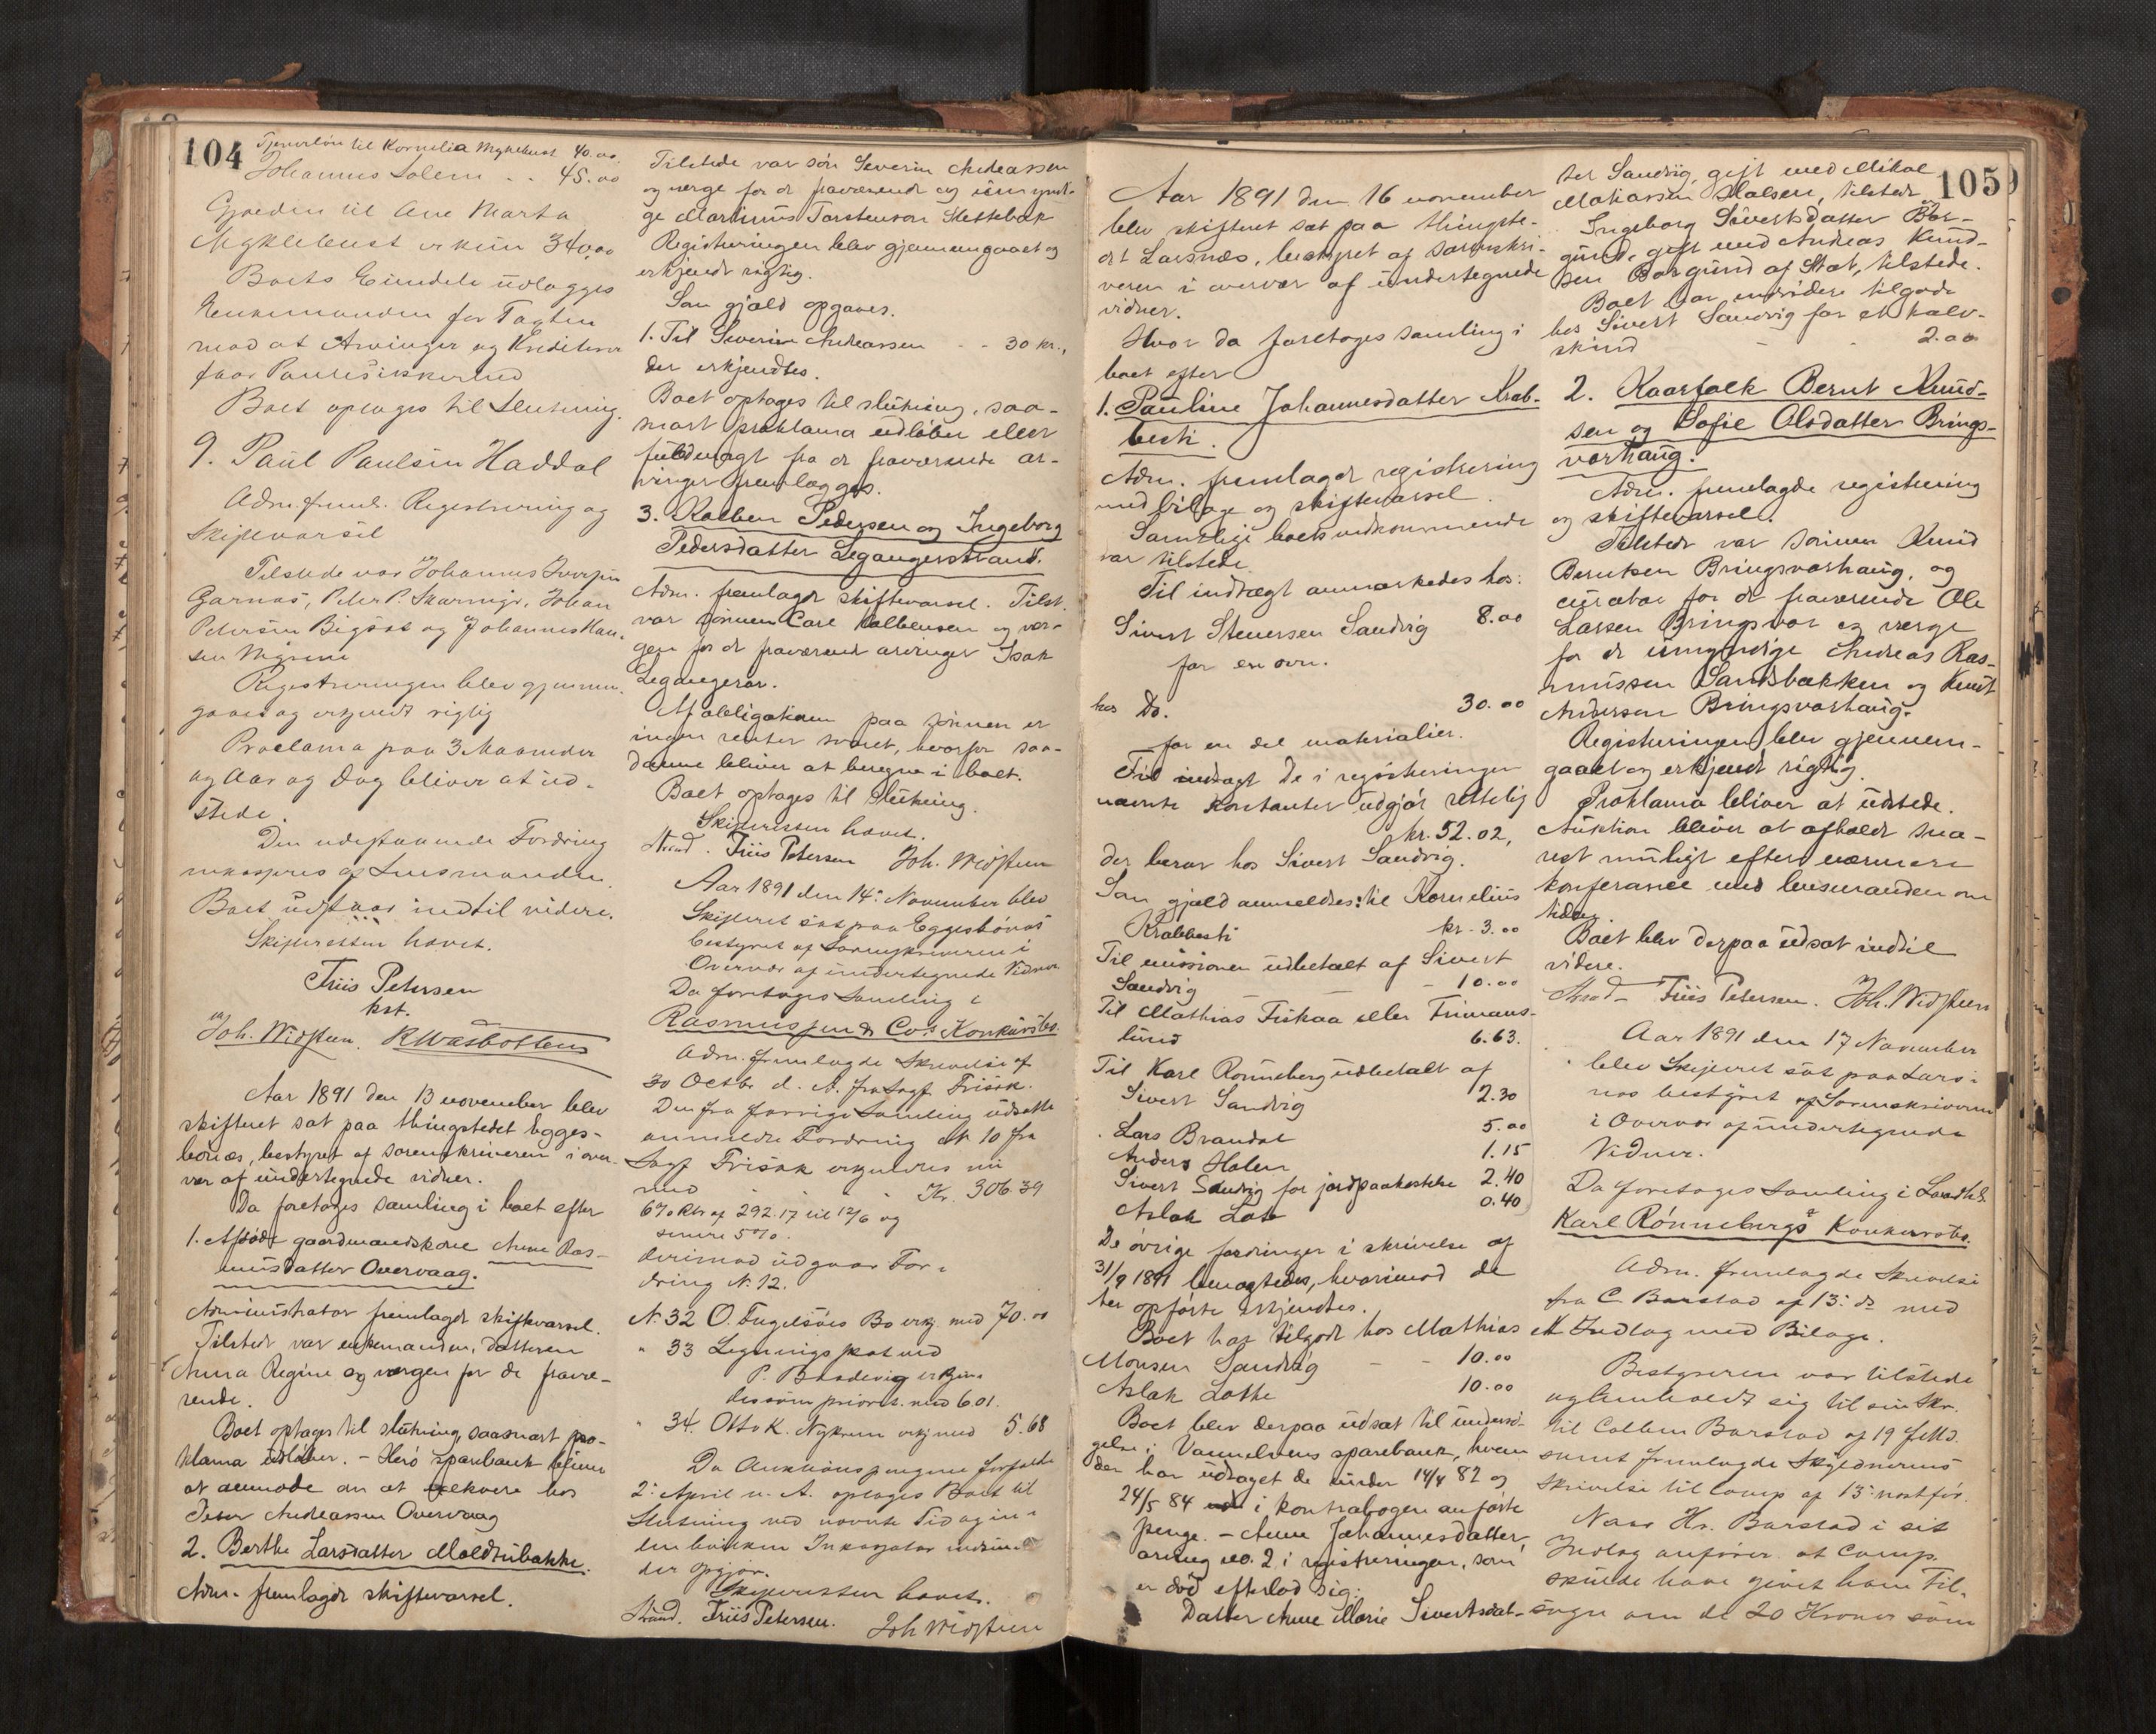 104
Tjenerløn til Kornelia Myklebust 40.00
Johannes Solem - - 45.00
Gjælden til Ane Marta
Myklebust er kun 340,00
Boets Eiendele udlægges
Enkemanden for Taxten
mod at Arvinger og Kreditorer
faar
Boet optages til Slutning.
9. Paul Paulsen Haddal
Adm. freml. Registrering og
Skiftevarsel
Tilstede var Johannes Iversen
Garnæs, Peter P. Johan
Petersen Bigset og Johannes Han-
sen
Registreringen blev gjennem-
gaaet og erkjendt rigtig
Proclama paa 3 Maaneder
og Aar og Dag bliver at ud-
stede.
Den udestaaende Fordring
inkasseres af Lensmanden.
Boet udstaar indtil videre.
Skifteretten hævet.
Friis Petersen
kst.
Joh. Widsteen. R Wasbotten
Aar 1891 den 13 november blev
skifteret sat paa thingstedet Egges-
bønæs, bestyret af sorenskriveren i over-
vær af undertegnede vidner.
Da foretages samling i boet efter
1. Afdøde gaardmandskone Anne Ras-
musdatter Overvaag.
Administrator fremlagde skiftevarsel.
Tilstede var enkemanden, datteren
Anna Regine og værgen for de fravæ-
rende.
Boet optages til slutning saasnart pro-
klama udløber. - Herø sparebank bliver
at anmode om at hos
Peter Andreassen Overvaag
2. Berthe Larsdatter Moldtubakke.
Adm. fremlagde skiftevarsel.
Tilstede var søn Severin Andreassen
og værge for de fraværende og umyndi-
ge Martinus Torstenson Slettebak
Registreringen blev gjennemgaaet og
erkjendt rigtig.
Som gjæld opgaves.
1. Til Severin Andreassen - - 30 kr.,
der erkjendtes.
Boet optages til slutning, saa-
snart proklama udløber eller
fuldmagt fra de fraværende ar-
vinger fremlægges.
3. Kolben Pedersen og Ingeborg
Pedersdatter Legangerstrand.
Adm. fremlagde skiftevarsel. Tilst.
var sønnen Carl Kolbensen og vær-
gen for de fraværende arvinger Isak
Leganger.
Af obligationen paa sønnen er
ingen renter svaret, hvorfor saa-
danne bliver at beregne i boet.
Boet optages til slutning.
Skifteretten hævet.
Strand. Friis Petersen Joh. Widsteen
Aar 1891 den 14. November blev
Skifteret sat paa Eggesbønæs
bestyret af Sorenskriveren i
Overvær af undertegnede Vidner
Da foretages Samling i
Rasmussen & Co's Konkursbo.
Adm. fremlagde Skrivelse af
30 Octbr. d. A. fra Sagf. Frisak.
Den fra forrige Samling udsatte
anmeldte Fordring N. 10 fra
Sagf. Frisak erkjendes nu
med - - - Kr. 306.39
6% Rtr af 292.17 til 12/6 og
senere 5%.
derimod udgaar For-
dring N. 12.
N. 32 O. Fugelsøis Bo erkj. med 70.00
" 33 Ligningspost ved
P. erkjen-
des som priorit. med 6.01.
" 34. Otto K. erkj med 5.68
Da Auktionspengene forfalder
2. April n. A. optages Boet til
Slutning ved nævnte Tid og in-
den Inkassator
der opgjør.
Skifteretten hævet.
Strand. Friis Petersen. Joh Widsteen
105
Aar 1891 den 16 november
blev skifteret sat paa thingste-
det Larsnæs, bestyret af sorenskri-
veren i overvær af undertegnede
vidner.
Hvor da foretages samling i
boet efter
1. Pauline Johannesdatter Krab-
besti.
Adm. fremlagde registrering
med bilage og skiftevarsel.
Samtlige boets vedkommende
var tilstede.
Til indtægt anmærkedes hos:
Sivert Steversen Sandvig 8.00
for en ovn.
hos Do. 30.00
for en del materialier.
Til indtægt De i registreringen
nævnte Kontanter udgjør rettelig
kr. 52.02,
der beror hos Sivert Sandvig.
Som gjæld anmeldtes: til Kornelius
Krabbesti kr. 3.00
Til missionen udbetalt af Sivert
Sandvig - 10.00
Til Mathias Fiskaa eller Frimans-
lund 6.63.
Til Karl Rønneberg udbetalt af
Sivert Sandvig 2.30
Lars Brandal 5.00
Anders Holen 1.15
Sivert Sandvig for jordpaakastelse 2.40
Aslak Lote 0.40
De øvrige fordringer i skrivelse af
31/9 1891 benægtedes, hvorimod de
her opførte erkjendtes.
Boet har tilgode hos Mathias
Monsen Sandvig - - 10.00
Aslak Lothe 10.00
Boet blev derpaa udsat til undersø-
gelse i Vannelvens sparebank, hvem
der har udtaget de under 14/4 82 og
24/5 84 i kontrabogen anførte
penge. - Anne Johannesdatter,
arving no. 2 i registreringen, som
er død efterlod sig:
Datter Anne Marie Sivertsdat-
ter Sandvig, gift med Mikal
Mathiassen Halsen, tilstede
Ingeborg Sivertsdatter Bor-
gund, gift med Andreas Knud-
sen Borgund af Stat, tilstede.
Boet har endvidere tilgode
hos Sivert Sandvig for et kalv-
skind - - 2.00
2. Kaarfolk Bernt Knud-
sen og Sofie Olsdatter Brings-
vorhaug.
Adm. fremlagde registrering
og skiftevarsel.
Tilstede var sønnen Knud
Berntsen Bringsvorhaug, og
curator for de fraværende Ole
Larsen Bringsvor og værge
for de umyndige Andreas Ras-
mussen Sandsbakken og Knut
Andersen Bringsvorhaug.
Registreringen blev gjennem-
gaaet og erkjendt rigtig.
Proklama bliver at udstede.
Auktion bliver at afholde sna-
rest muligt efter nærmere
konferance med lensmanden om
tiden.
Boet blev derpaa udsat indtil
videre.
Strand - Friis Petersen. Joh. Widsteen
Aar 1891 den 17 November
blev Skifteret sat paa Lars-
næs bestyret af Sorenskriveren
i Overvær af undertegnede
Vidner.
Da foretages Samling i Landh.
Karl Rønnebergs Konkursbo.
Adm. fremlagde Skrivelse
fra C. Barstad af 13. ds med
et Indlæg med Bilage.
Bestyreren var tilstede
og henholdt sig til sin Skr.
til Colben Barstad af 19 f. Md.
samt fremlagde Skyldnerens
Skrivelse til comp. af 13.
Naar Hr. Barstad i sit
Indlæg anfører at Comp.
skulde have givet ham Til-
sagn om de 20 Kroner som